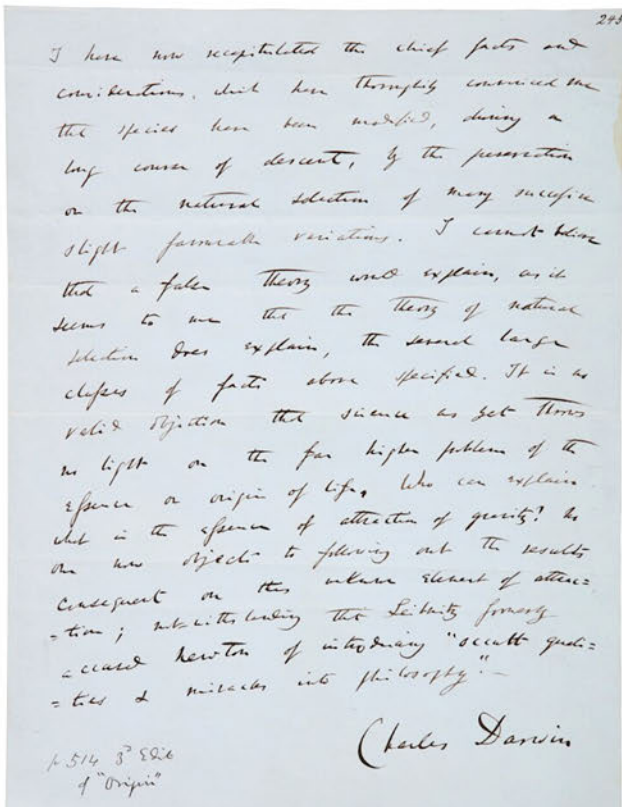 245
I have now recapitulated the chief facts and
considerations, which have thoroughly convinced me
that species have been modified, during a
long course of descent, by the preservation
or the natural selection of many successive
slight favourable variations. I cannot believe
that a false theory would explain, as it
seems to me that the theory of natural
selection does explain, the several large
classes of facts above specified. It is no
valid objection that science as yet throws
no light on the far higher problem of the
essence or origin of life. Who can explain
what is the essence of attraction of gravity? No
one now objects to following out the results
consequent on this unknown element of attrac=
=tion; notwithstanding that Leibnitz formerly
accused Newton of introducing "occult quali=
=ties & miracles into philosophy".—
Charles Darwin
p 514 3d Edit
of "Origin"